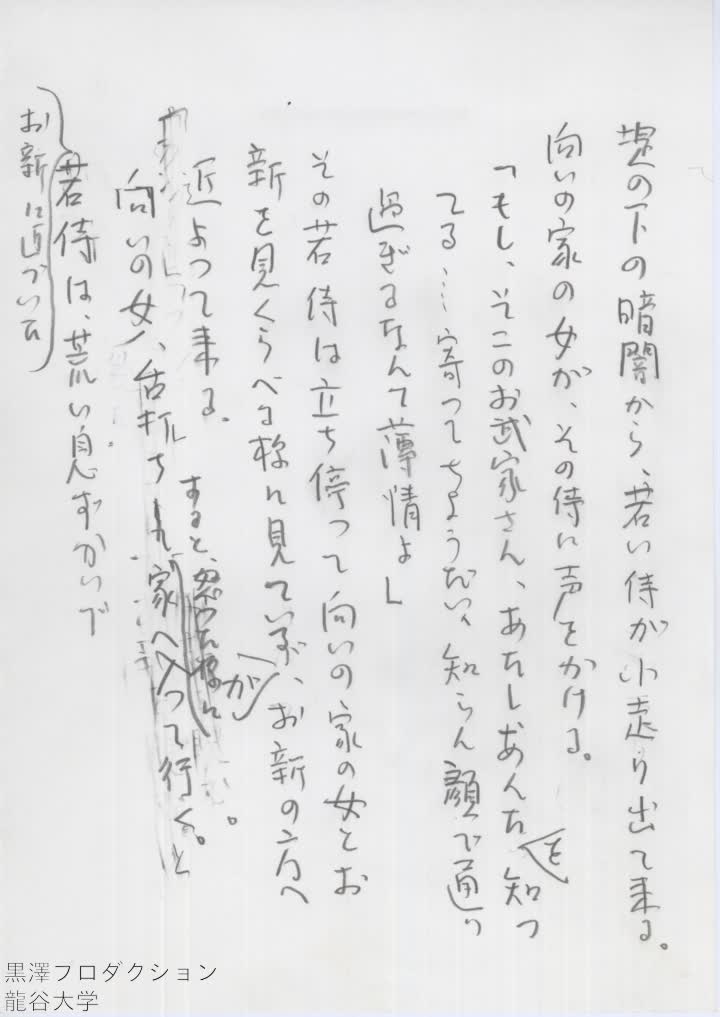 堤の下の暗闇から、若い侍が小走り出て来る。
向いの家の女が、その侍に声をかける。
「もし、そこのお武家さん、あたしあんたを知つ
てる…寄つてちようだい、知らん顔で通り
過ぎるなんて薄情よ」
その若侍は立ち停つて向いの家の女とお
新を見くらべる様に見ているが、お新の方へ
近よつて来る。
すると、怒つた様に
向いの女、舌打ちして家へ入つて行く。と
若侍は、荒い息ずかいで
お新に近づいた
黒澤プロダクション
龍谷大学